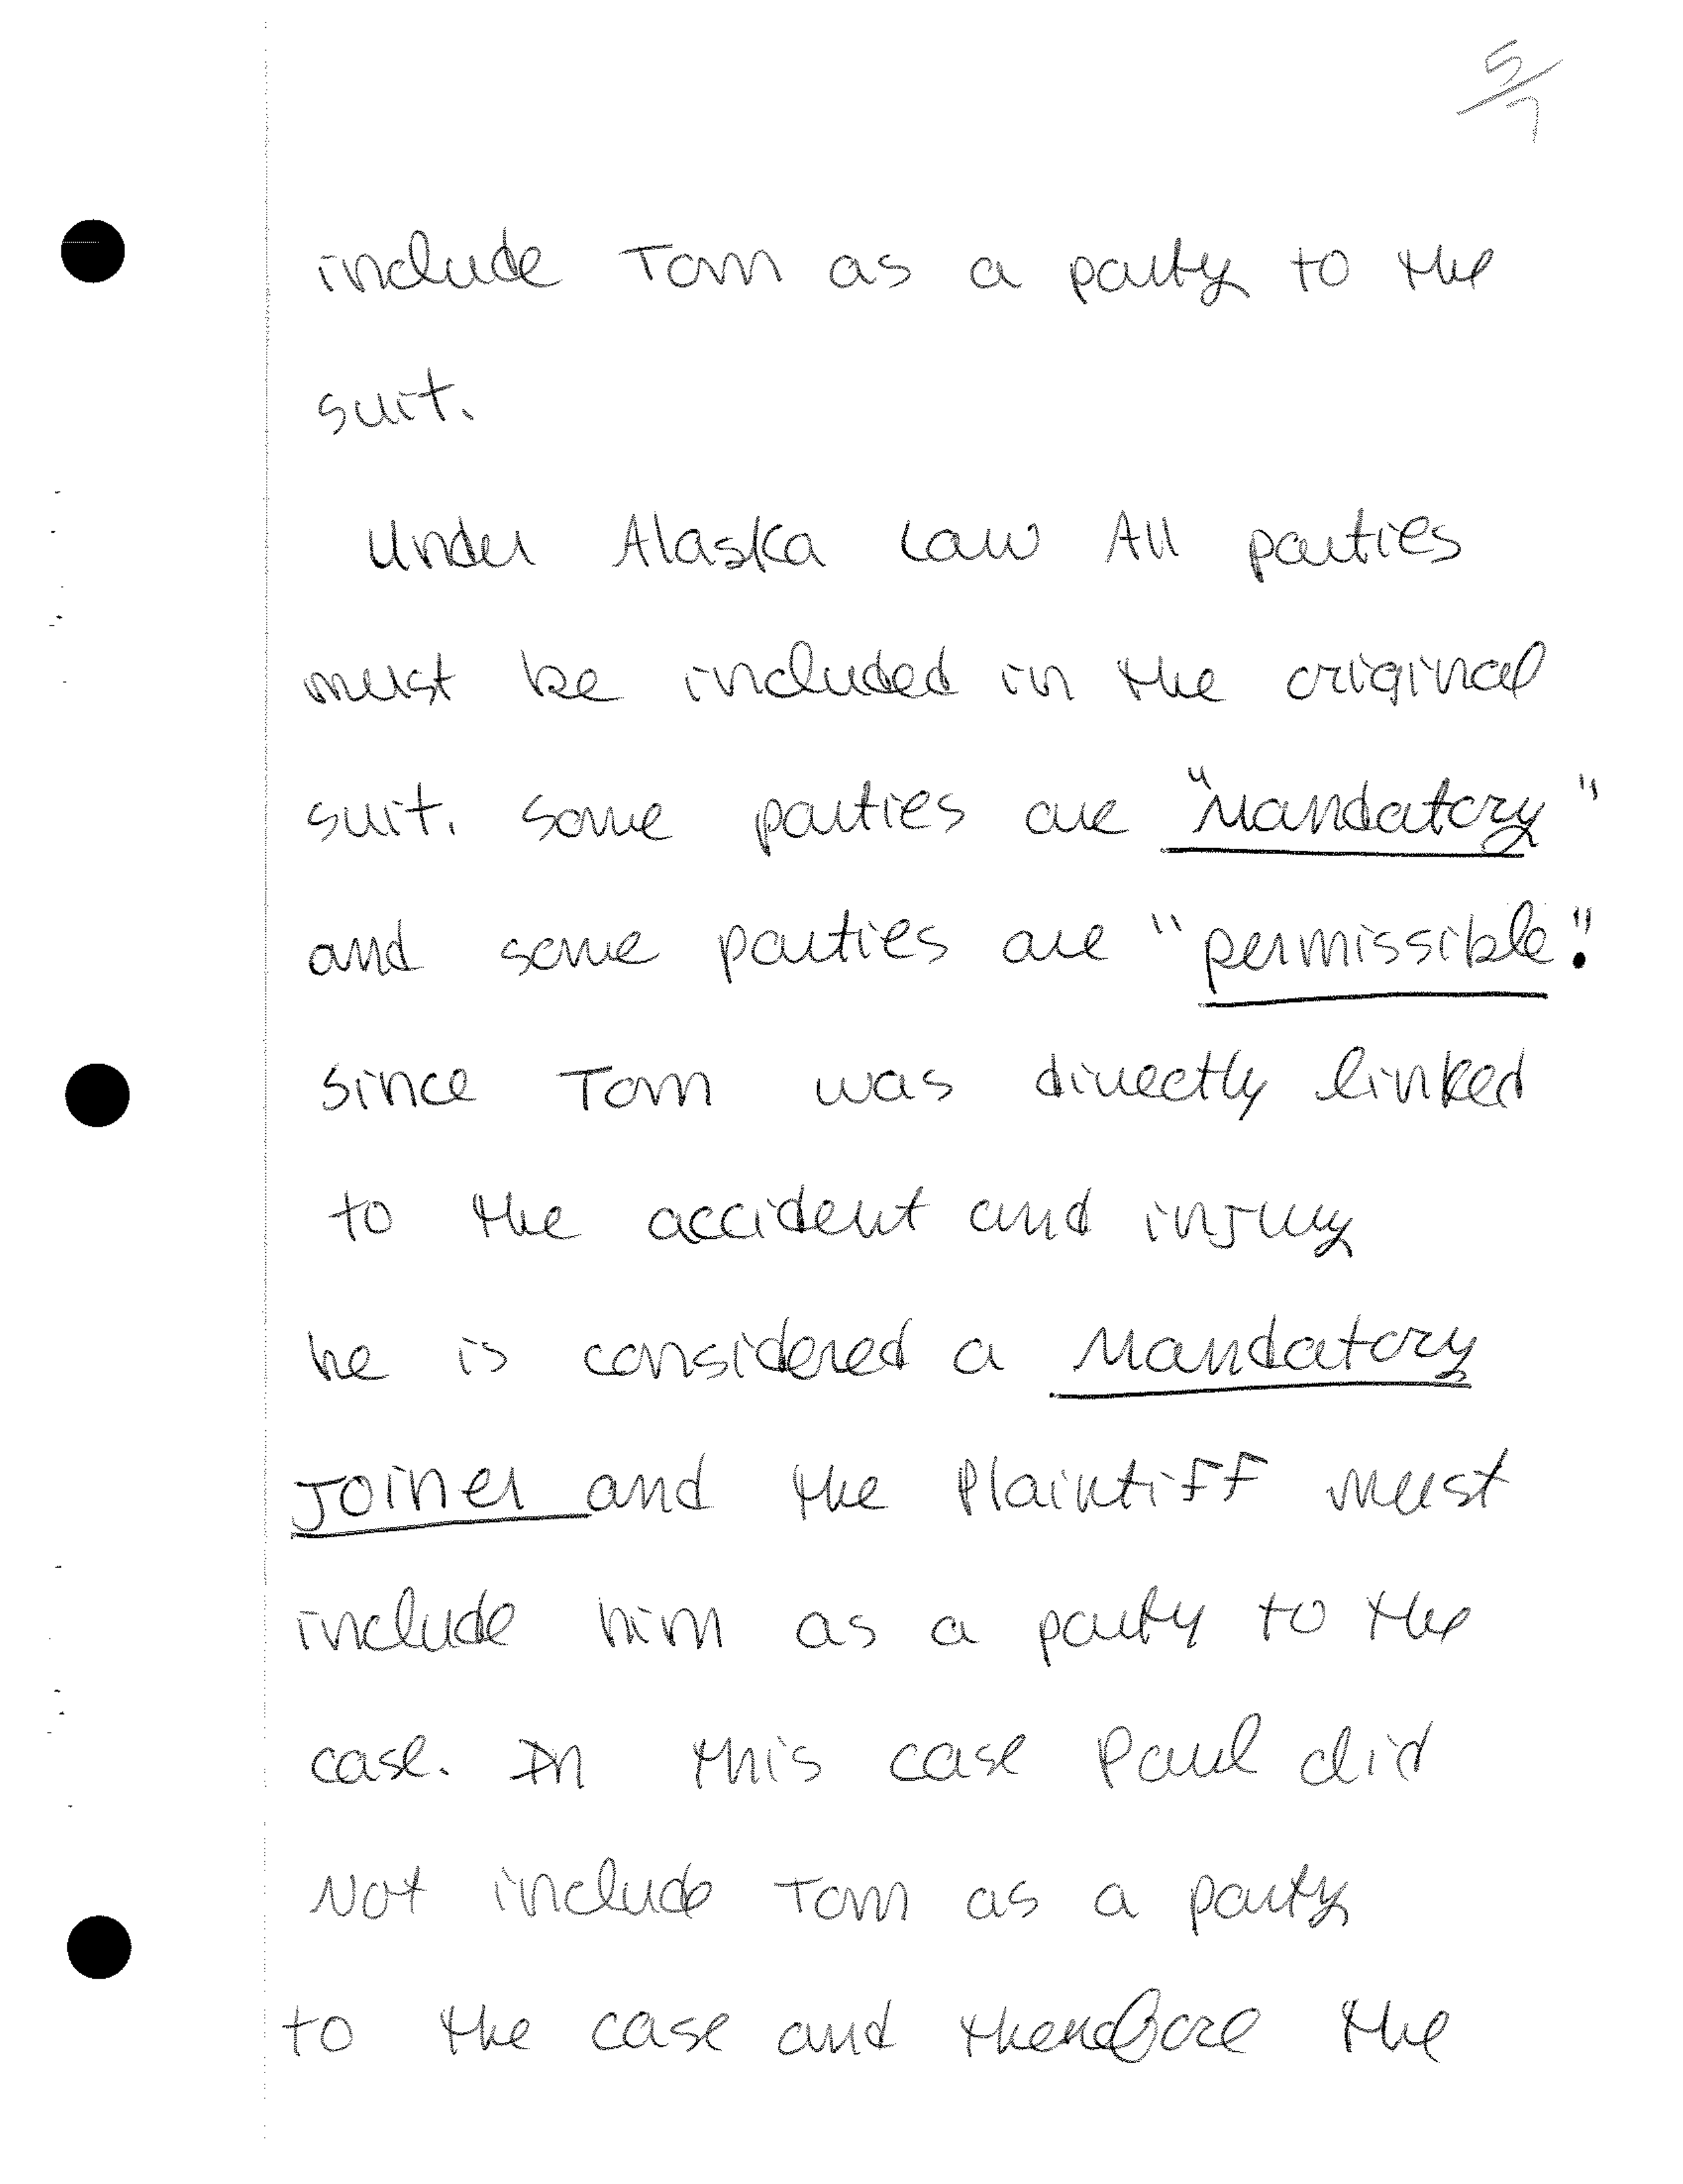 5/7
include Tom as a party to the
suit.
Under Alaska Law All parties
must be included in the original
suit. some parties are "Mandatory"
and some parties are "permissible".
Since Tom was directly linked
to the accident and injury
he is considered a Mandatory
Joiner and the Plaintiff must
include him as a party to the
case. In this case Paul did
Not include Tom as a party
to the case and therefore the